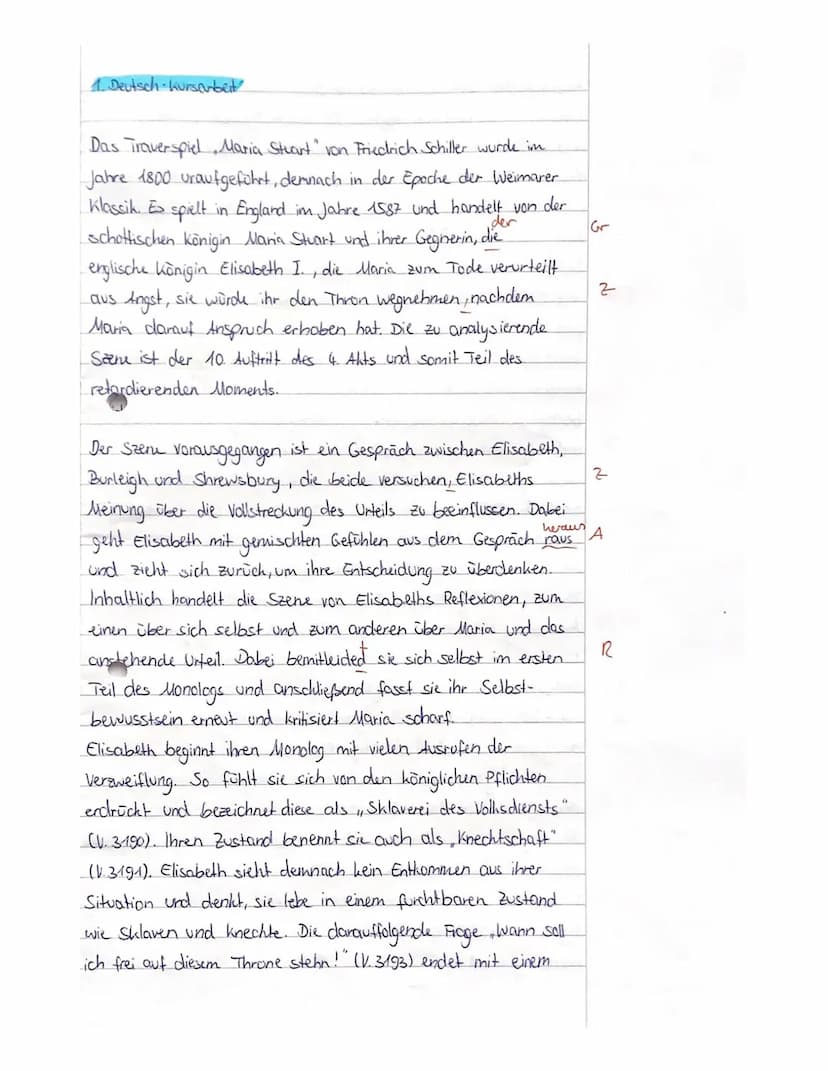 1. Deutsch-Kursarbeit
Das Trauerspiel „Maria Stuart" von Friedrich Schiller wurde im
Jahre 1800 uraufgeführt, demnach in der Epoche der Weimarer
Klassik. Es spielt in England im Jahre 1587 und handelt von der
der
schottischen Königin Maria Stuart und ihrer Gegnerin, die Gr
englische Königin Elisabeth I., die Maria zum Tode verurteilt
aus Angst, sie würde ihr den Thron wegnehmen, nachdem Z
Maria darauf Anspruch erhoben hat. Die zu analysierende
Szene ist der 10. Auftritt des 4. Akts und somit Teil des
retardierenden Moments.
Der Szene vorausgegangen ist ein Gespräch zwischen Elisabeth,
Burleigh und Shrewsbury, die beide versuchen, Elisabeths Z
Meinung über die Vollstreckung des Urteils zu beeinflussen. Dabei
heraus
geht Elisabeth mit gemischten Gefühlen aus dem Gespräch raus A
und zieht sich zurück, um ihre Entscheidung zu überdenken.
Inhaltlich handelt die Szene von Elisabeths Reflexionen, zum
einen über sich selbst und zum anderen über Maria und das
t
anstehende Urteil. Dabei bemitleided sie sich selbst im ersten R
Teil des Monologs und anschließend fasst sie ihr Selbst-
bewusstsein erneut und kritisiert Maria scharf.
Elisabeth beginnt ihren Monolog mit vielen Ausrufen der
Verzweiflung. So fühlt sie sich von den königlichen Pflichten
erdrückt und bezeichnet diese als „Sklaverei des Volksdiensts"
(V. 3190). Ihren Zustand benennt sie auch als „Knechtschaft"
(V. 3191). Elisabeth sieht demnach kein Entkommen aus ihrer
Situation und denkt, sie lebe in einem furchtbaren Zustand
wie Sklaven und Knechte. Die darauffolgende Frage „Wann soll
ich frei auf diesem Throne stehn!" (V. 3193) endet mit einem